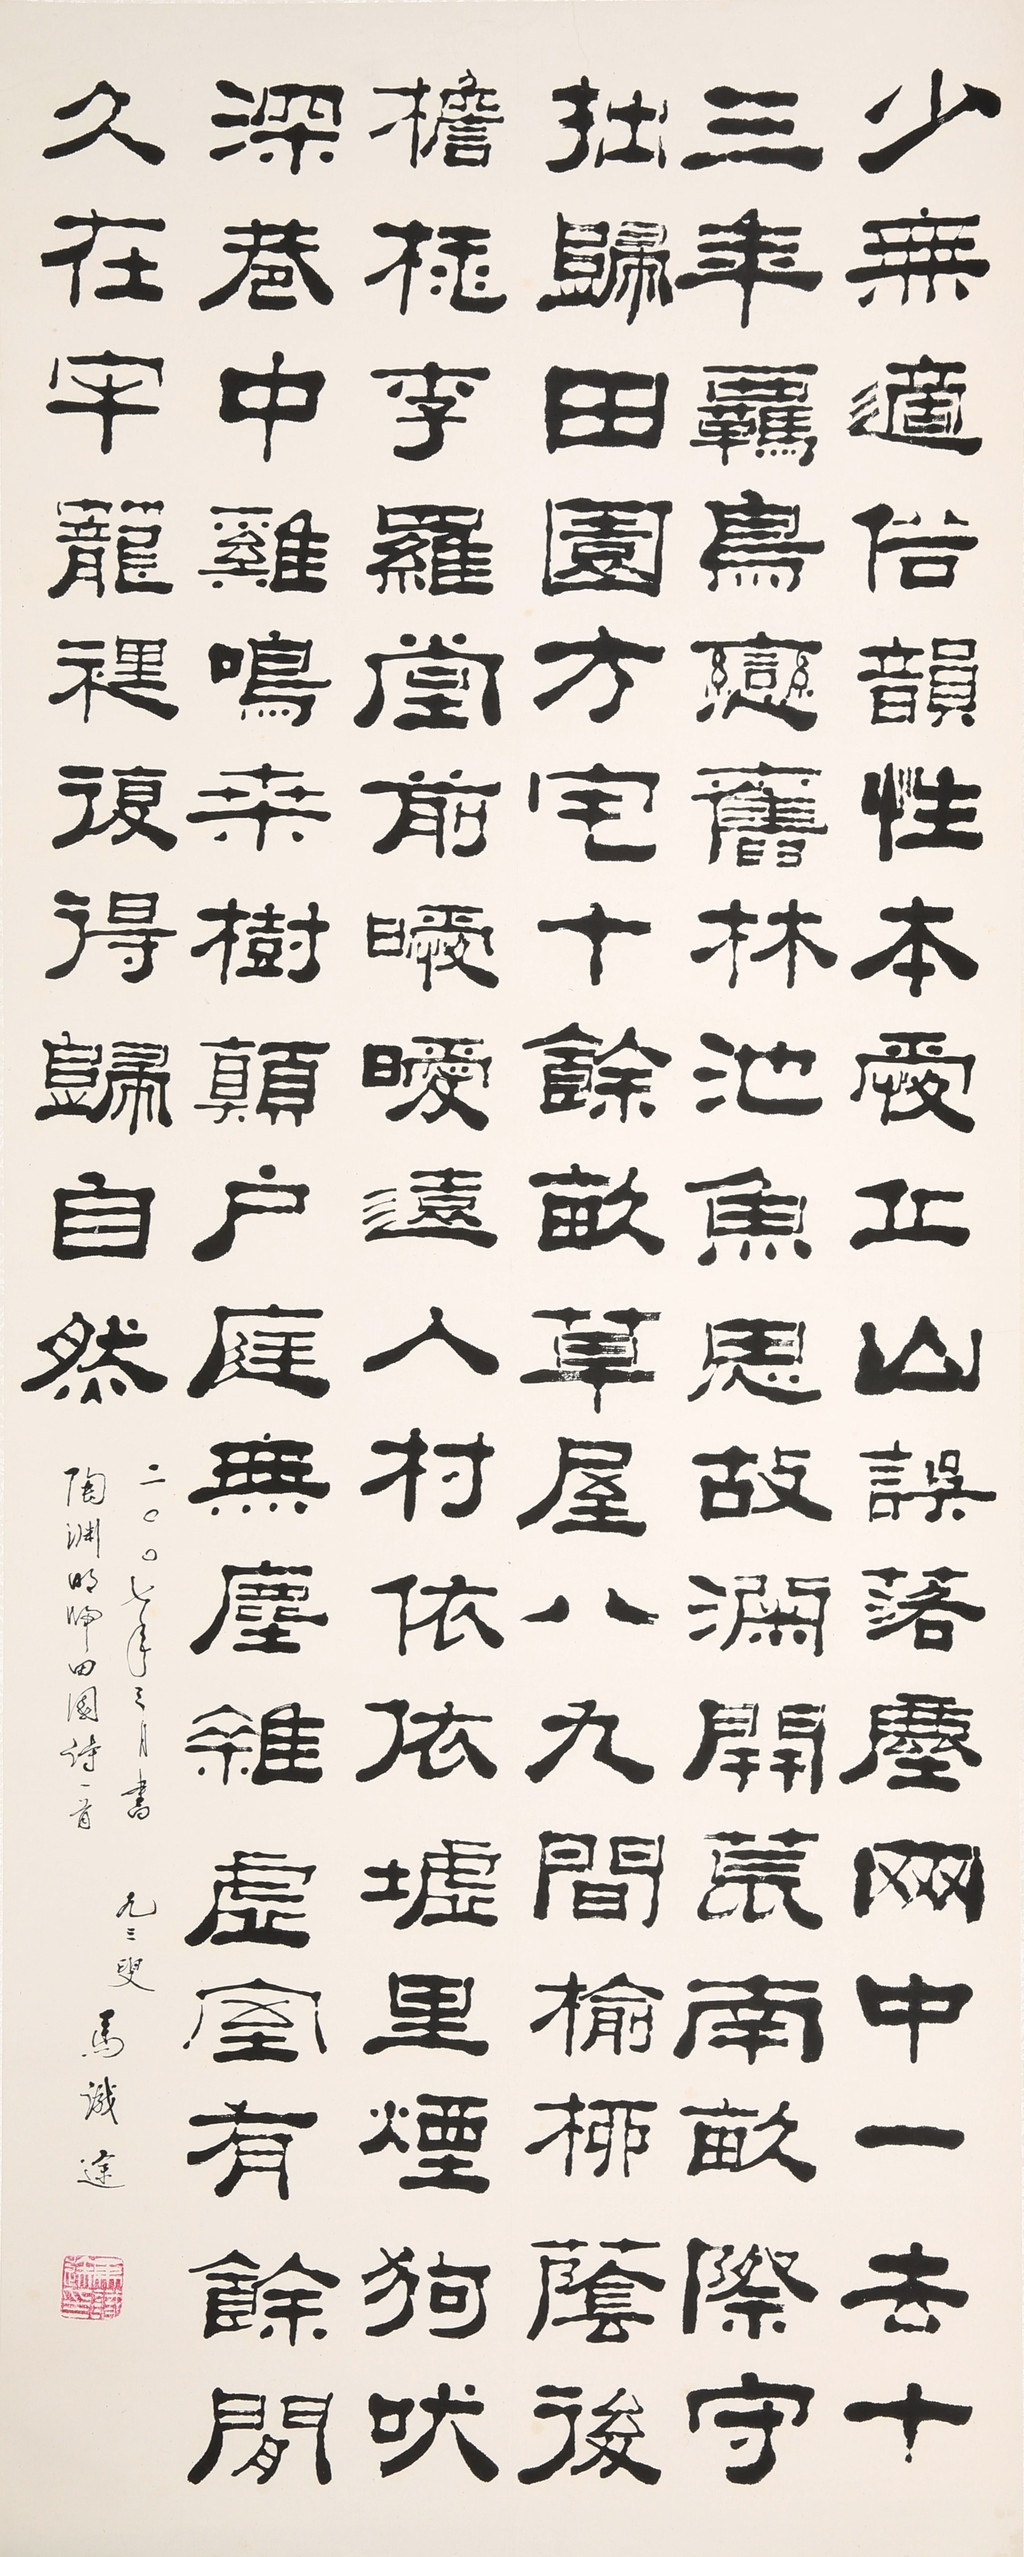 少無適俗韻性本愛丘山誤落塵网中一去十
三年羈鳥戀舊林池魚思故淵開荒南畝際守
拙歸田園方宅十餘畝草屋八九間榆柳蔭後
檐桃李羅堂前曖曖遠人村依依墟里煙狗吠
深巷中雞鳴桑樹顛户庭無塵雜虛室有餘閒
久在牢籠裡復得歸自然
二〇〇七年三月書
陶淵明歸田園詩一首
九三叟 馬識途